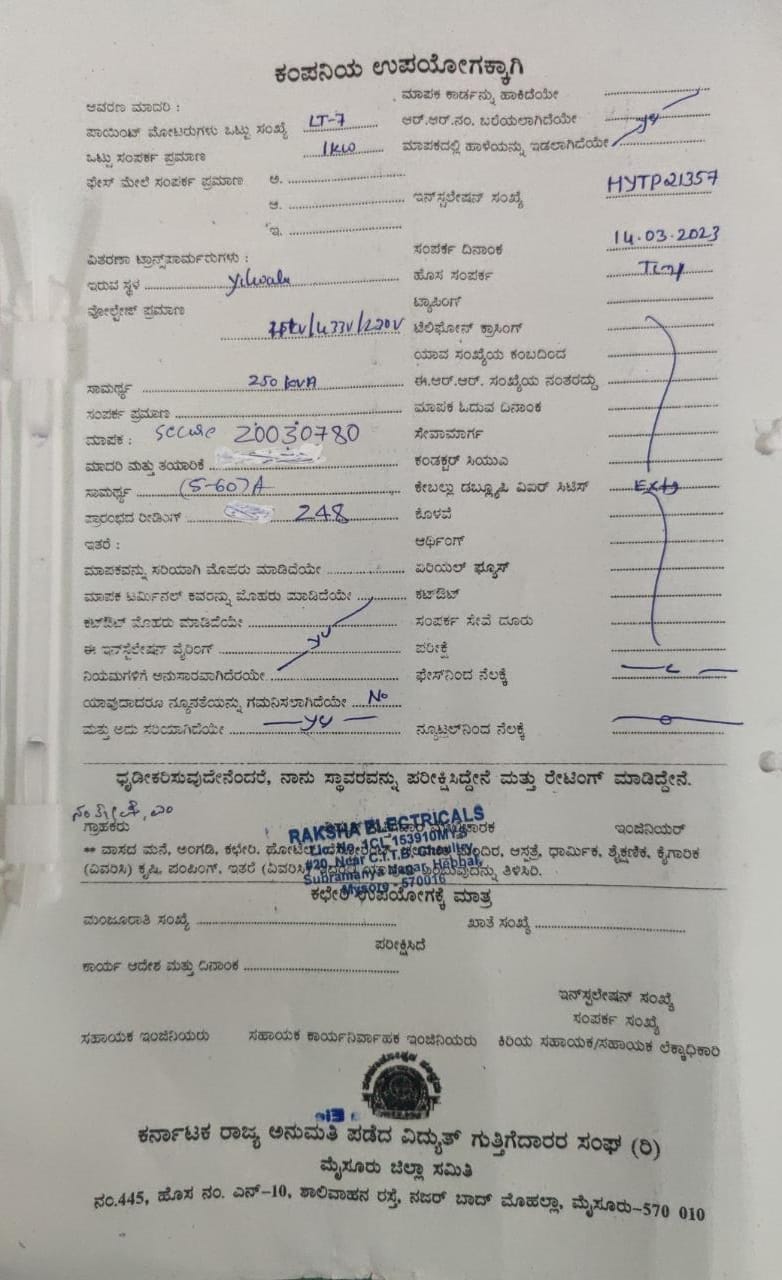 ಕಂಪನಿಯ ಉಪಯೋಗಕ್ಕಾಗಿ
ಆವರಣ ಮಾದರಿ :
ಪಾಯಿಂಟ್ ಮೋಟರುಗಳು ಒಟ್ಟು ಸಂಖ್ಯೆ LT-7
ಒಟ್ಟು ಸಂಪರ್ಕ ಪ್ರಮಾಣ 1KW
ಫೇಸ್ ಮೇಲೆ ಸಂಪರ್ಕ ಪ್ರಮಾಣ ಅ.
ಆ.
ಇ.
ವಿತರಣಾ ಟ್ರಾನ್ಸ್‌ಫಾರ್ಮರುಗಳು :
ಇರುವ ಸ್ಥಳ Yelwala
ವೋಲ್ಟೇಜ್ ಪ್ರಮಾಣ
/433V/230V
ಸಾಮರ್ಥ್ಯ 250 kVA
ಸಂಪರ್ಕ ಪ್ರಮಾಣ
ಮಾಪಕ : Secure 20030780
ಮಾದರಿ ಮತ್ತು ತಯಾರಿಕೆ
ಸಾಮರ್ಥ್ಯ (5-60)A
ಪ್ರಾರಂಭದ ರೀಡಿಂಗ್ 248
ಇತರೆ :
ಮಾಪಕವನ್ನು ಸರಿಯಾಗಿ ಮೊಹರು ಮಾಡಿದೆಯೇ
ಮಾಪಕ ಟರ್ಮಿನಲ್ ಕವರನ್ನು ಮೊಹರು ಮಾಡಿದೆಯೇ
ಕಟ್‌ಔಟ್ ಮೊಹರು ಮಾಡಿದೆಯೇ
ಈ ಇನ್‌ಸ್ಟಲೇಷನ್ ವೈರಿಂಗ್ yes
ನಿಯಮಗಳಿಗೆ ಅನುಸಾರವಾಗಿದೆರಯೇ
ಯಾವುದಾದರೂ ನ್ಯೂನತೆಯನ್ನು ಗಮನಿಸಲಾಗಿದೆಯೇ No
ಮತ್ತು ಅದು ಸರಿಯಾಗಿದೆಯೇ yes
ಮಾಪಕ ಕಾರ್ಡನ್ನು ಹಾಕಿದೆಯೇ
ಆರ್.ಆರ್.ನಂ. ಬರೆಯಲಾಗಿದೆಯೇ yes
ಮಾಪಕದಲ್ಲಿ ಹಾಳೆಯನ್ನು ಇಡಲಾಗಿದೆಯೇ
ಇನ್‌ಸ್ಟಲೇಷನ್ ಸಂಖ್ಯೆ HYTP21357
ಸಂಪರ್ಕ ದಿನಾಂಕ 14.03.2023
ಹೊಸ ಸಂಪರ್ಕ Temp
ಟ್ಯಾಪಿಂಗ್
ಟೆಲಿಫೋನ್ ಕ್ರಾಸಿಂಗ್
ಯಾವ ಸಂಖ್ಯೆಯ ಕಂಬದಿಂದ
ಈ.ಆರ್.ಆರ್. ಸಂಖ್ಯೆಯ ನಂತರದ್ದು
ಮಾಪಕ ಓದುವ ದಿನಾಂಕ
ಸೇವಾಮಾರ್ಗ
ಕಂಡಕ್ಟರ್ ಸಿಯುಎ
ಕೇಬಲ್ಲು ಡಬ್ಲ್ಯೂಪಿ ವಿಐಆರ್ ಸಿಟಿಸ್
ಕೊಳವೆ
ಆರ್ಥಿಂಗ್
ಏರಿಯಲ್ ಫ್ಯೂಸ್
ಕಟ್‌ಔಟ್
ಸಂಪರ್ಕ ಸೇವೆ ದೂರು
ಪರೀಕ್ಷೆ
ಫೇಸ್‌ನಿಂದ ನೆಲಕ್ಕೆ
ನ್ಯೂಟ್ರಲ್‌ನಿಂದ ನೆಲಕ್ಕೆ
ಧೃಡೀಕರಿಸುವುದೇನೆಂದರೆ, ನಾನು ಸ್ಥಾವರವನ್ನು ಪರೀಕ್ಷಿಸಿದ್ದೇನೆ ಮತ್ತು ರೇಟಿಂಗ್ ಮಾಡಿದ್ದೇನೆ.
ಗ್ರಾಹಕರು ಇಂಜಿನಿಯರ್
RAKSHA ELECTRICALS
Lic No. 1CL-153910MYS
#20, Near C.I.T.B. Choultry,
Subramanya Nagar, Hebbal,
Mysore - 570016
** ವಾಸದ ಮನೆ, ಅಂಗಡಿ, ಕಛೇರಿ, ಆಸ್ಪತ್ರೆ, ಧಾರ್ಮಿಕ, ಶೈಕ್ಷಣಿಕ, ಕೈಗಾರಿಕ
(ವಿವರಿಸಿ) ಕೃಷಿ, ಪಂಪಿಂಗ್, ಇತರೆ ತಿಳಿಸಿರಿ.
ಕಛೇರಿ ಉಪಯೋಗಕ್ಕೆ ಮಾತ್ರ
ಮಂಜೂರಾತಿ ಸಂಖ್ಯೆ ಖಾತೆ ಸಂಖ್ಯೆ
ಪರೀಕ್ಷಿಸಿದೆ
ಕಾರ್ಯ ಆದೇಶ ಮತ್ತು ದಿನಾಂಕ
ಇನ್‌ಸ್ಟಲೇಷನ್ ಸಂಖ್ಯೆ
ಸಂಪರ್ಕ ಸಂಖ್ಯೆ
ಸಹಾಯಕ ಇಂಜಿನಿಯರು ಸಹಾಯಕ ಕಾರ್ಯನಿರ್ವಾಹಕ ಇಂಜಿನಿಯರು ಕಿರಿಯ ಸಹಾಯಕ/ಸಹಾಯಕ ಲೆಕ್ಕಾಧಿಕಾರಿ
ಕರ್ನಾಟಕ ರಾಜ್ಯ ಅನುಮತಿ ಪಡೆದ ವಿದ್ಯುತ್ ಗುತ್ತಿಗೆದಾರರ ಸಂಘ (ರಿ)
ಮೈಸೂರು ಜಿಲ್ಲಾ ಸಮಿತಿ
ನಂ.445, ಹೊಸ ನಂ. ಎನ್-10, ಶಾಲಿವಾಹನ ರಸ್ತೆ, ನಜರ್ ಬಾದ್ ಮೊಹಲ್ಲಾ, ಮೈಸೂರು-570 010